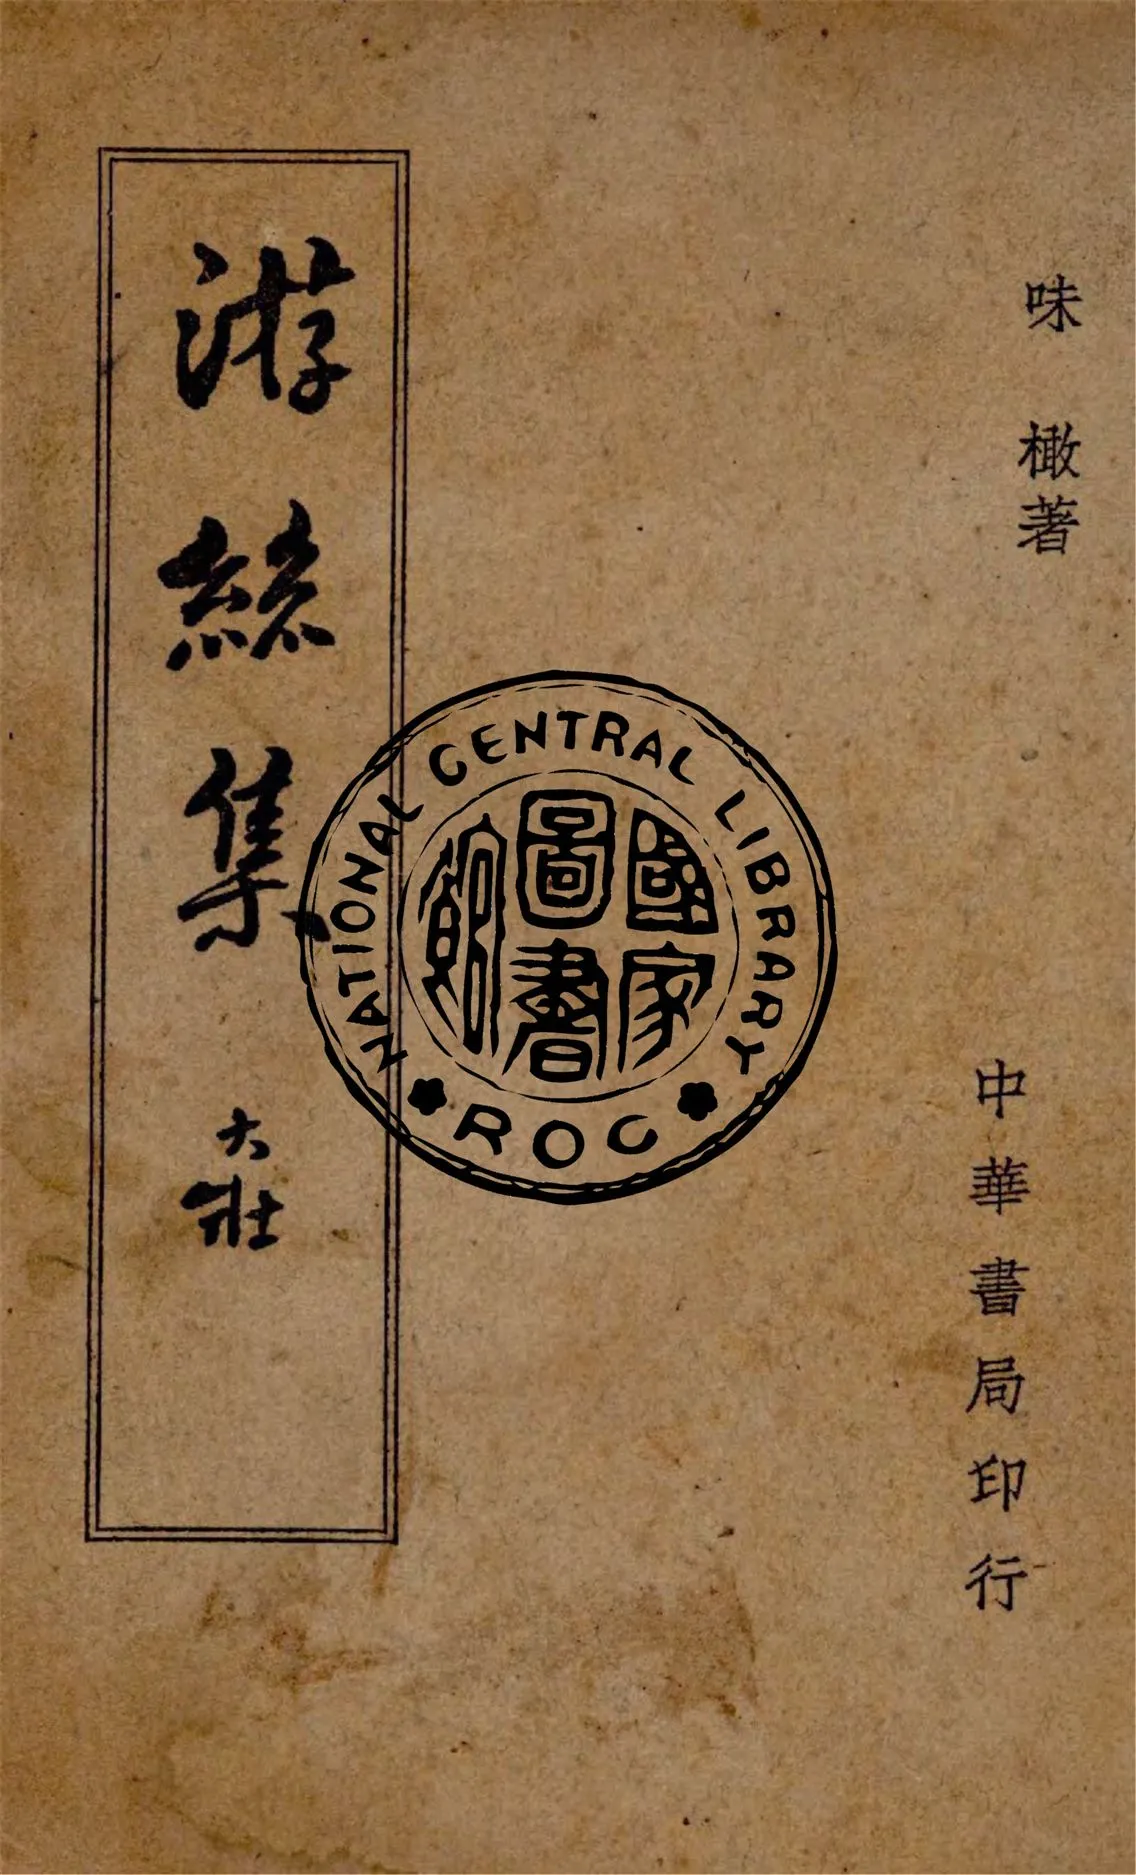 味橄著
中華書局印行
游絲集
大壯
NATIONAL CENTRAL LIBRARY
國家圖書館
ROC